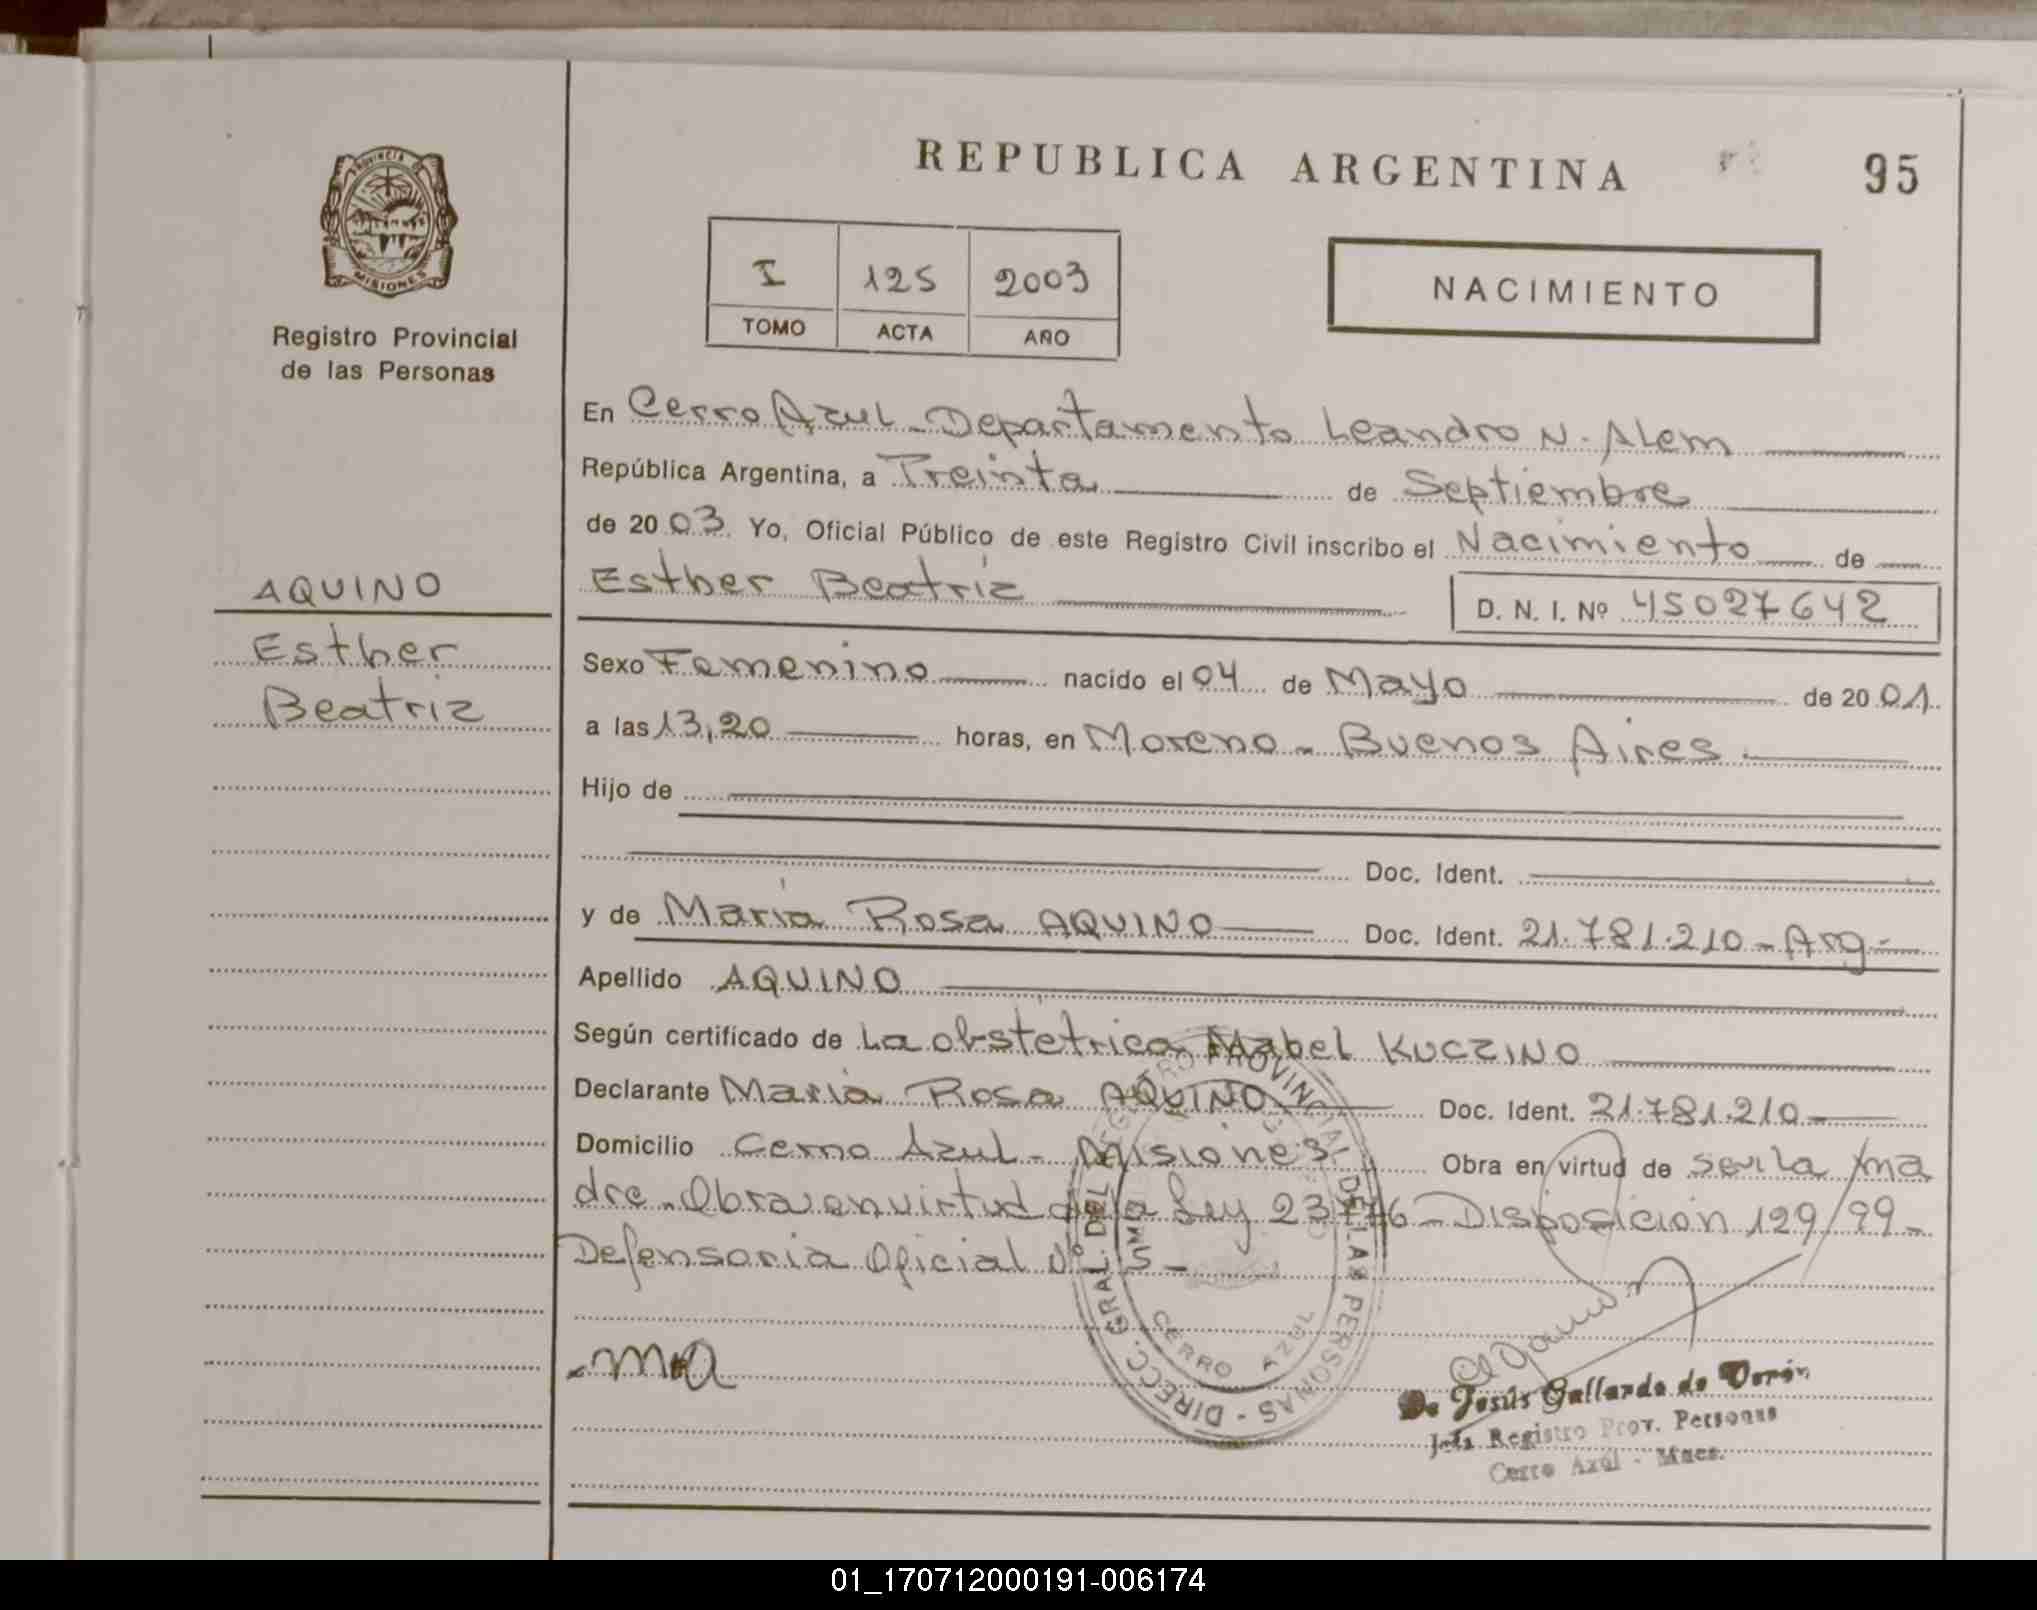 PROVINCIA DE
MISIONES
Registro Provincial
de las Personas
AQUINO
Esther
Beatriz
REPUBLICA ARGENTINA 95
I 125 2003
TOMO ACTA AÑO
NACIMIENTO
En Cerro Azul - Departamento Leandro N. Alem
República Argentina, a Treinta de Septiembre
de 2003. Yo, Oficial Público de este Registro Civil inscribo el Nacimiento de
Esther Beatriz D. N. I. Nº 45027642
Sexo Femenino nacido el 04 de Mayo de 2001.
a las 13,20 horas, en Moreno - Buenos Aires
Hijo de
Doc. Ident.
y de María Rosa AQUINO Doc. Ident. 21.781.210 - Arg -
Apellido AQUINO
Según certificado de La obstétrica Mabel KUCZINO
Declarante María Rosa AQUINO Doc. Ident. 21.781.210 -
Domicilio Cerro Azul - Misiones Obra en virtud de ser la ma
dre - Obra en virtud de la Ley 23776 - Disposición 129/99 -
Defensoria Oficial Nº 5 -
DIRECC. GRAL. DEL REGISTRO PROVINCIAL DE LAS PERSONAS -
CERRO AZUL
De Jesús Gallardo de Verón
Jefa Registro Prov. Personas
Cerro Azul - Mnes.
01_170712000191-006174